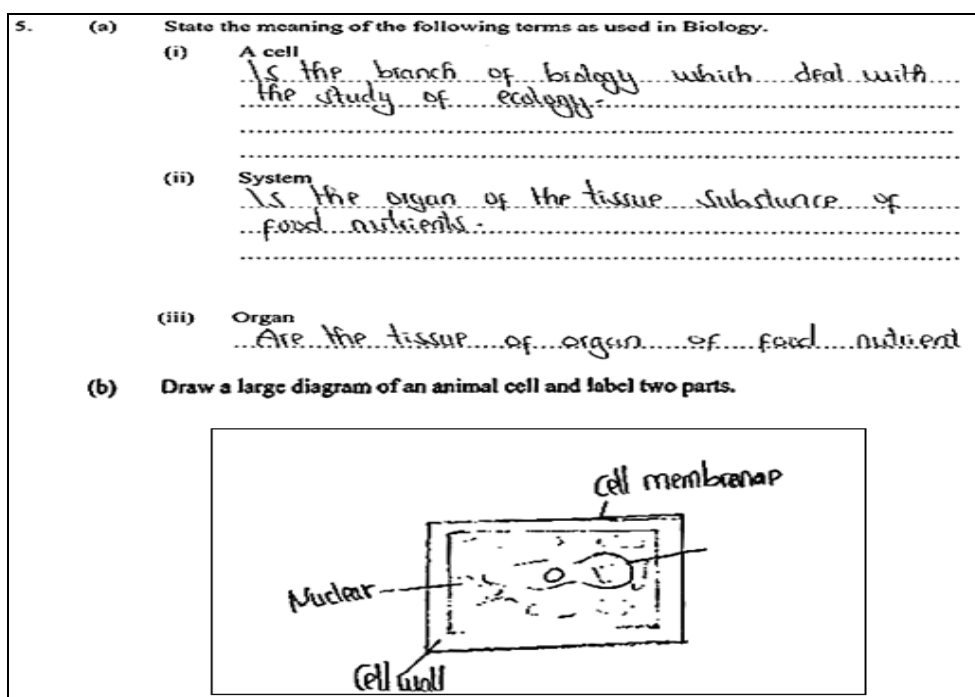 5. (a) State the meaning of the following terms as used in Biology.
(i) A cell
Is the branch of biology which deal with
the study of ecology.
(ii) System
Is the organ of the tissue substance of
food nutrients.
(iii) Organ
Are the tissue of organ of food nutrient
(b) Draw a large diagram of an animal cell and label two parts.
Cell membranae
Nuclear
Cell wall